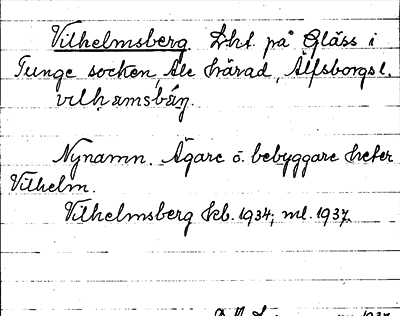 Vilhelmsberg Lht. på Gläss i
Tunge socken, Ale härad, Älfsborgs l.
vilhamsbäry.
Nynamn. Ägare o. bebyggare heter
Vilhelm.
Vilhelmsberg kb. 1934; ml. 1937
1937